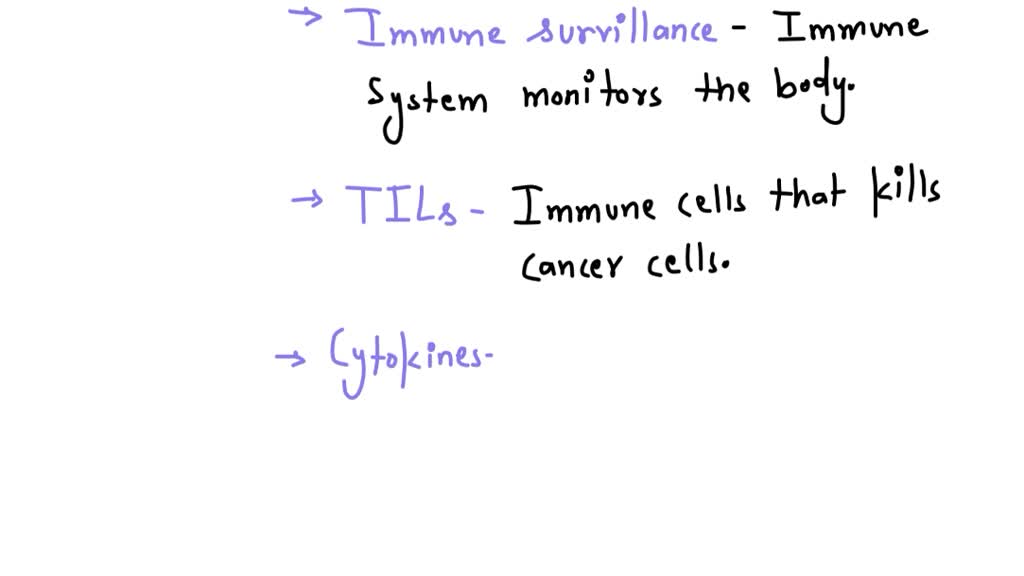 → Immune survillance - Immune
System monitors the body.
→ TILs - Immune cells that kills
Cancer cells.
→ Cytokines-